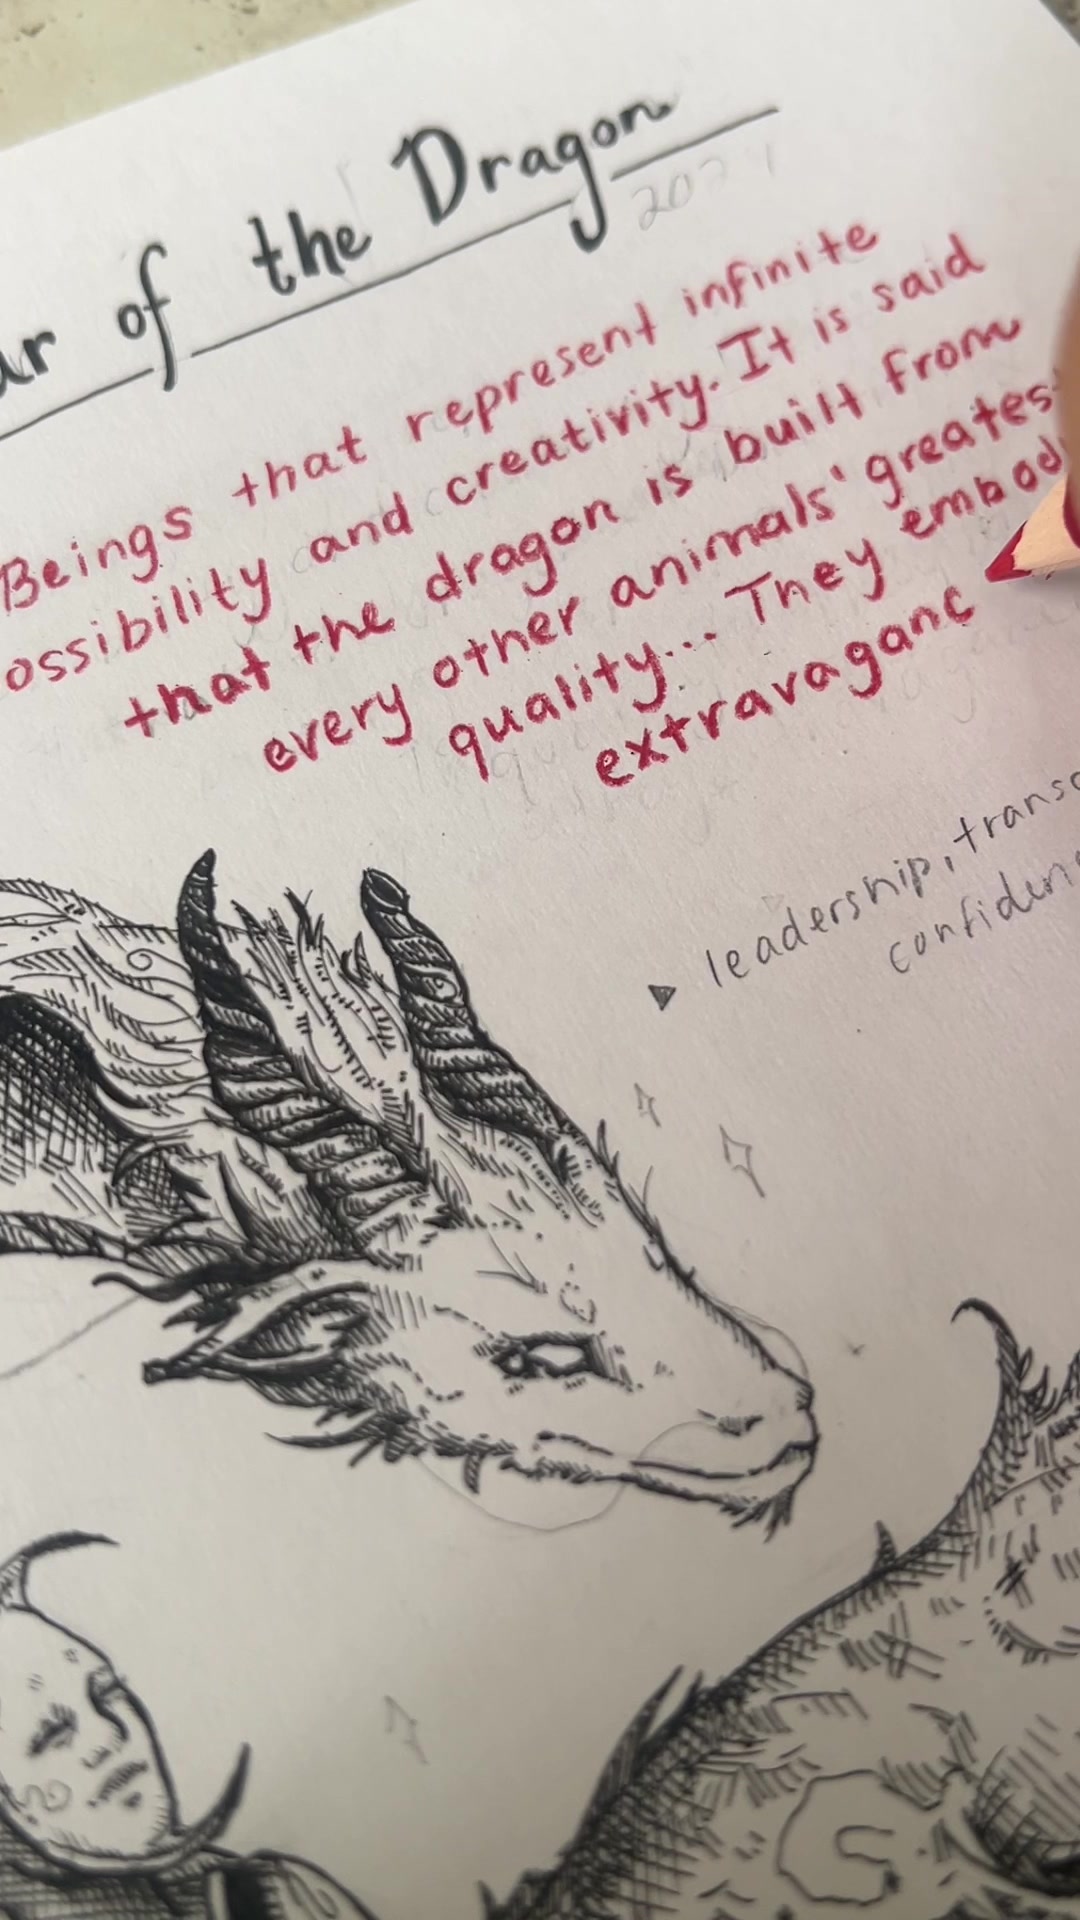 ar of the Dragon
202
Beings that represent infinite
ossibility and creativity. It is said
that the dragon is built from
every other animals' greates
quality... They embod
extravaganc
leadership, transc
confiden